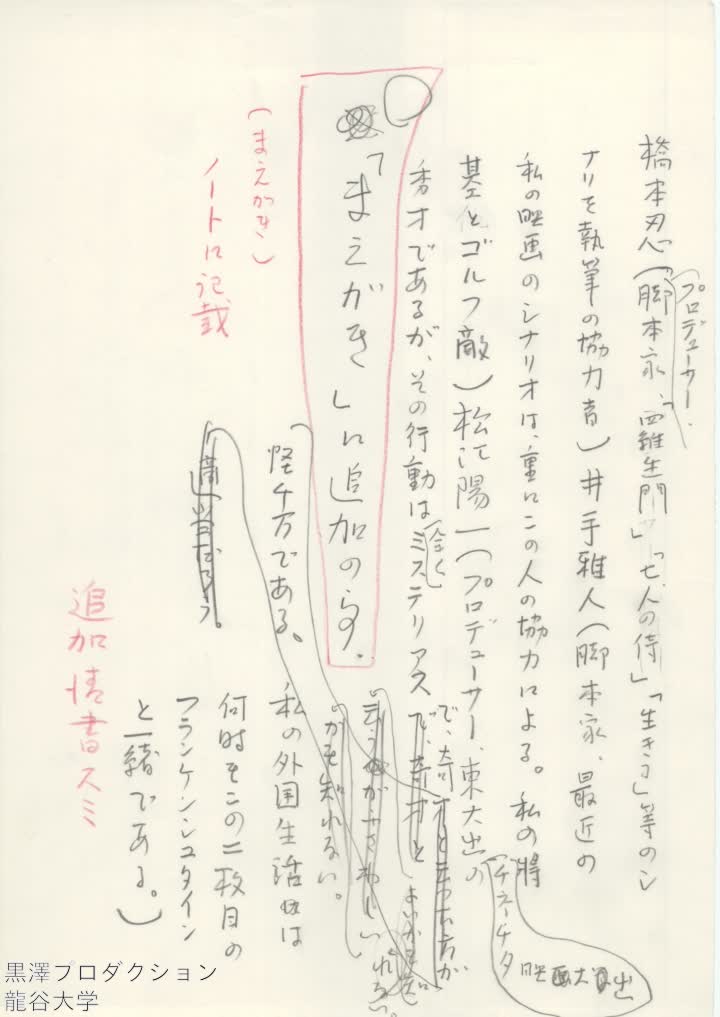 橋本忍(脚本家、「羅生門」「七人の侍」「生きる」等のシ
プロデューサー.
ナリを執筆の協力者)井手雅人(脚本家、最近の
私の映画のシナリオは、重にこの人の協力による。私の将
基とゴルフ敵)松江陽一(プロデューサー、東大出の
チネーチタ
映画大出
秀才であるが、その行動は全くミステリアス
で、奇
「まえがき」に追加の事.
怪千万である、
私の外国生活は
何時もこの二枚目の
フランケンシュタイン
と一緒である。)
(まえがき)
ノートに記載
追加清書スミ
黒澤プロダクション
龍谷大学